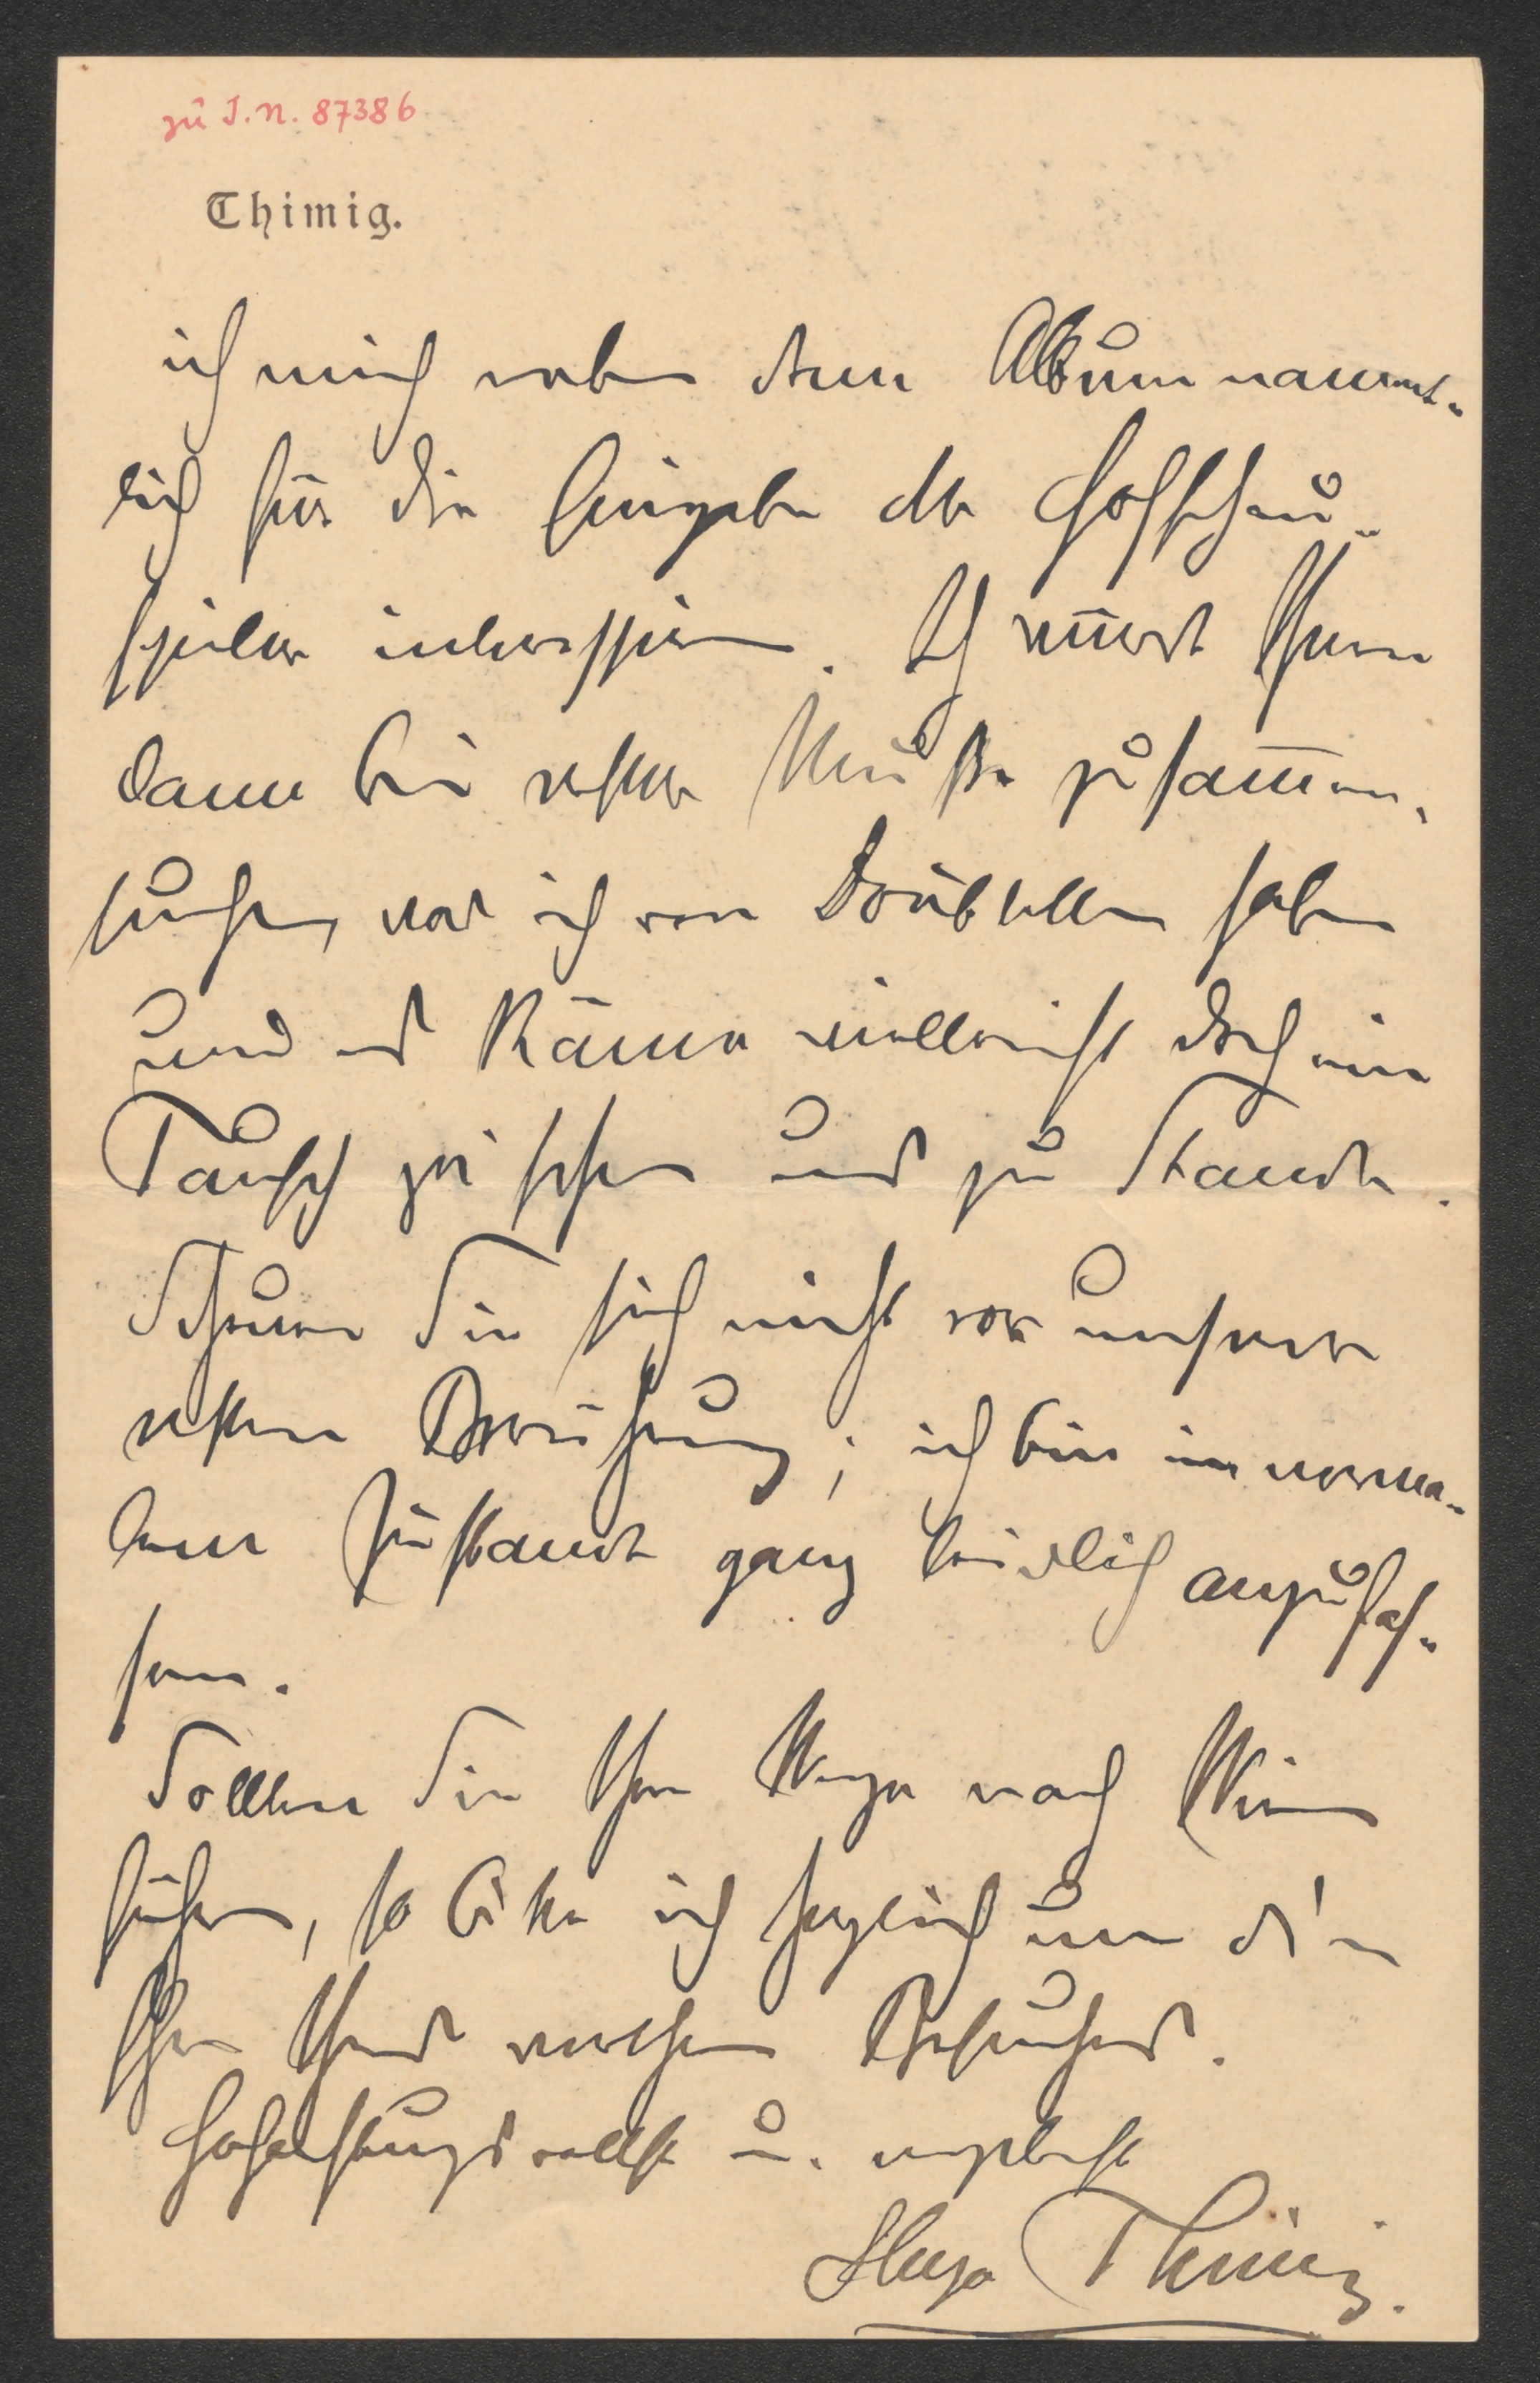 zu I.N. 87386
Thimig.
ich mich neben dem Album nament-
lich für die Eingabe der Hofschau-
spieler interessiere. Ich würde Ihnen
dann bei erster Muße zusammen-
suchen, was ich von Doubletten habe
und es käme vielleicht doch ein
Tausch zwischen uns zu Stande.
Scheuen Sie sich nicht vor unserer
ersten Berührung; ich bin im norma-
len Zustande ganz leidlich anzufas-
sen.
Sollten Sie Ihre Wege nach Wien
führen, so bitte ich sogleich um die
Ehre Ihres werthen Besuches.
Hochachtungsvollst u. ergebenst
Hugo Thimig.